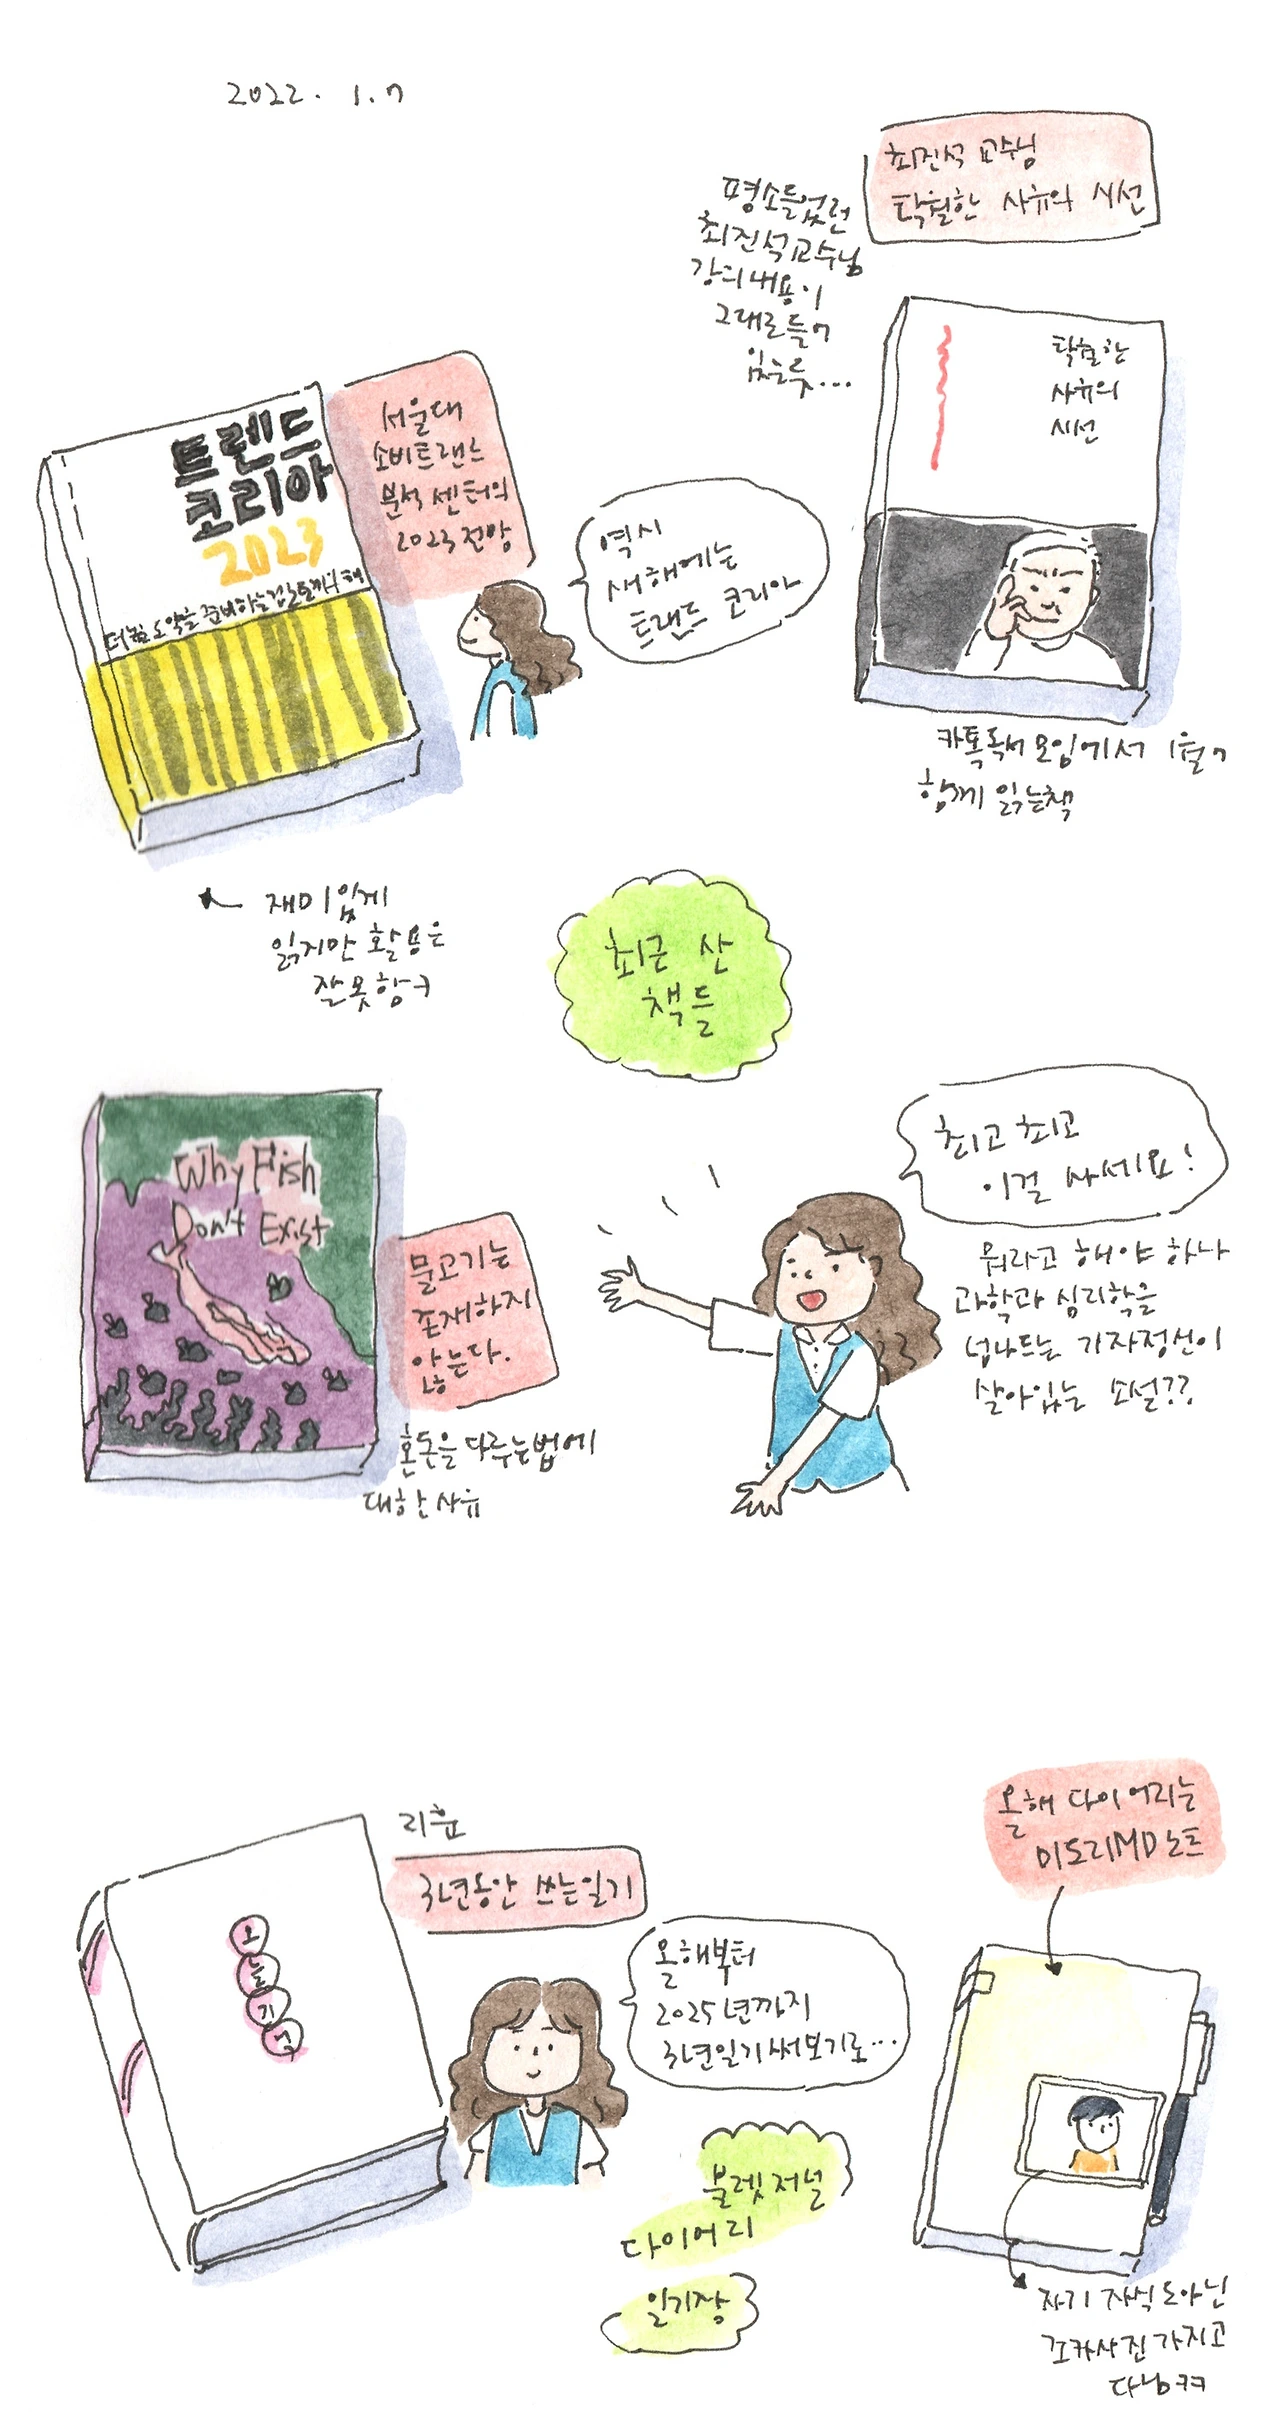 2022. 1.7
최진석 교수님
탁월한 사유의 시선
평소들었던
최진석교수님
강의내용이
그대로들어
있는듯...
탁월한
사유의
시선
카톡독서모임에서 1월에
함께 읽는책
트렌드
코리아
2023
더높은 도약을 준비하는 검은토끼의 해
서울대
소비트랜드
분석센터의
2023전망
역시
새해에는
트랜드 코리아
재미있게
읽지만 활용은
잘못함ㅋ
최근 산
책들
Why Fish
Don't Exist
물고기는
존재하지
않는다.
혼돈을 다루는법에
대한 사유
최고 최고
이걸 사세요!
뭐라고 해야 하나
과학과 심리학을
넘나드는 기자정신이
살아있는 소설??
리훈
3년동안 쓰는일기
오
늘
기
억
올해부터
2025년까지
3년일기써보기로...
불렛저널
다이어리
일기장
올해 다이어리는
미도리MD노트
자기 자식도아닌
조카사진 가지고
다님ㅋㅋ